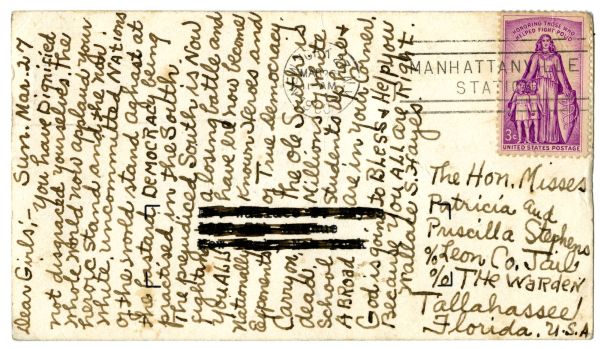 Dear Girls;- Sun. Mar. 27
You have Dignified
not disgraced yourselves. The
whole world now applaud your
heroic stand and all the non
white, uncommitted Nations
of the world stand aghast at
the bastard DEMOCRACY being
practised in the South.
The prejudiced South is Now
fighting a losing battle and
you ALL have become Nationally Known Heroes and
Exponents of True democracy
Carry on, The ole South is
dead. Millions of white
School students here and
ABROAD are in your corner.
God is going to BLESS & Help you
Because you ALL are Right.
Wallace S. Hayes.
HONORING THOSE WHO
HELPED FIGHT POLIO
3¢
UNITED STATES POSTAGE
MANHATTANVILLE
STATION
The Hon. Misses
Patricia and
Priscilla Stephens
℅ Leon Co. Jail
℅ THE WARDEN
Tallahassee
Florida. U.S.A